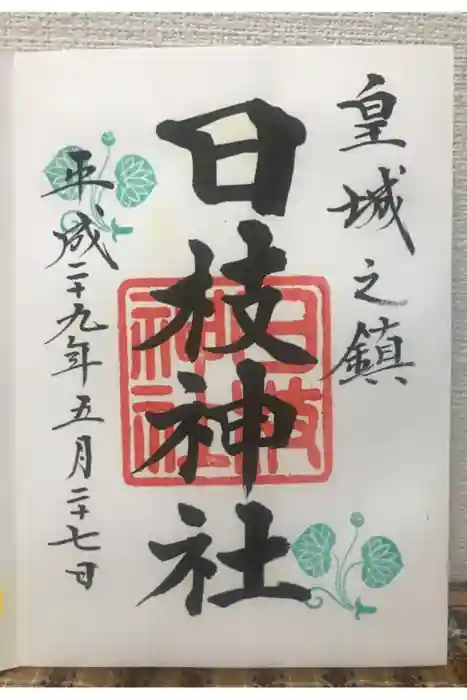 皇城之鎮
日枝神社
日枝神社
平成二十九年五月二十七日